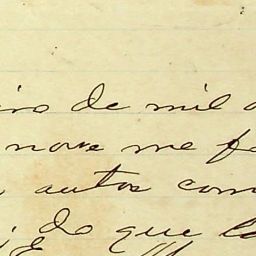 iro de mil o
nove me fo
autos com
do que lo